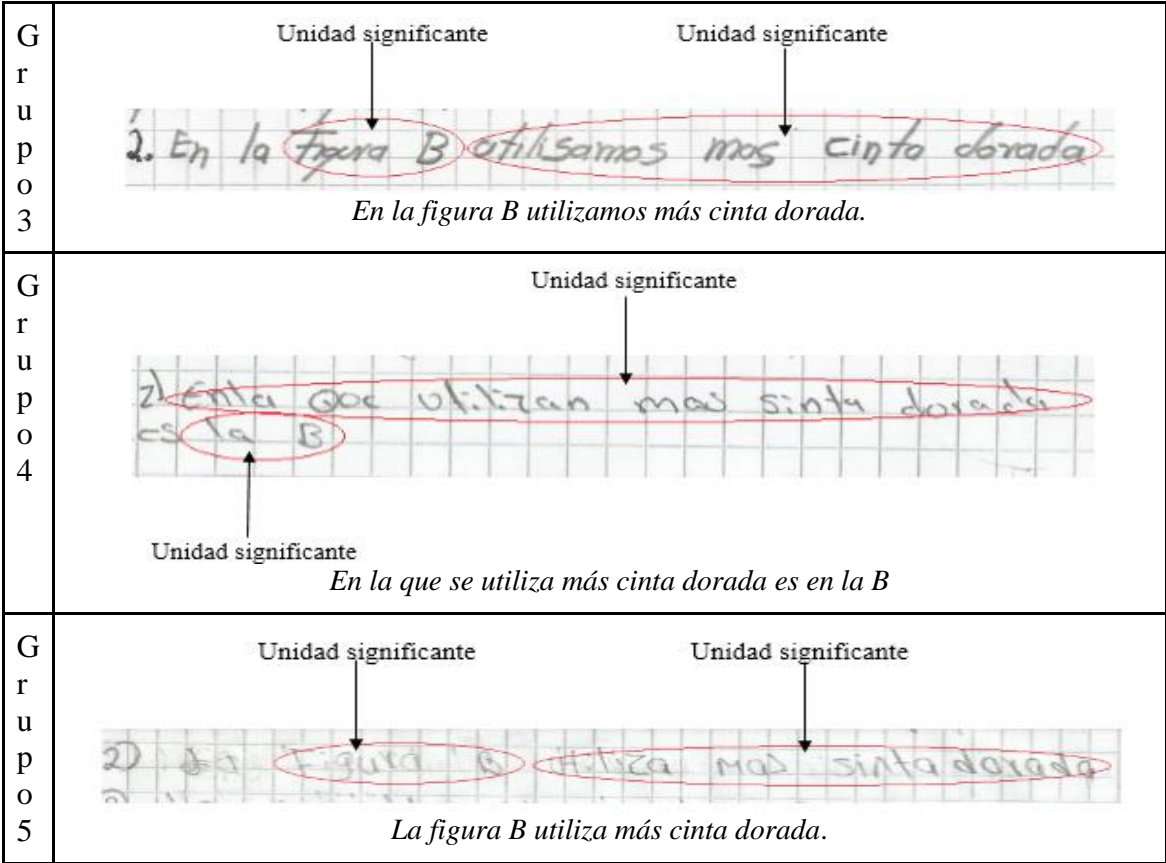 Grupo 3
Unidad significante Unidad significante
2. En la Figura B utilisamos mas cinta dorada
En la figura B utilizamos más cinta dorada.
Grupo 4
Unidad significante
2) Enla que utilizan mas sinta dorada
es la B
Unidad significante
En la que se utiliza más cinta dorada es en la B
Grupo 5
Unidad significante Unidad significante
2) La Figura B utiliza mas sinta dorada
La figura B utiliza más cinta dorada.